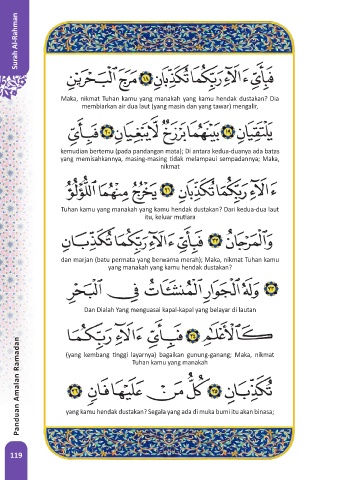 Surah Al-Rahman
فَبِأَيِّ ءَالَآءِ رَبِّكُمَا تُكَذِّبَانِ ١٨ مَرَجَ ٱلْبَحْرَيْنِ
Maka, nikmat Tuhan kamu yang manakah yang kamu hendak dustakan? Dia
membiarkan air dua laut (yang masin dan yang tawar) mengalir,
يَلْتَقِيَانِ ١٩ بَيْنَهُمَا بَرْزَخٌ لَّا يَبْغِيَانِ ٢٠ فَبِأَيِّ
kemudian bertemu (pada pandangan mata); Di antara kedua-duanya ada batas
yang memisahkannya, masing-masing tidak melampaui sempadannya; Maka,
nikmat
ءَالَآءِ رَبِّكُمَا تُكَذِّبَانِ ٢١ يَخْرُجُ مِنْهُمَا ٱللُّؤْلُؤُ
Tuhan kamu yang manakah yang kamu hendak dustakan? Dari kedua-dua laut
itu, keluar mutiara
وَٱلْمَرْجَانُ ٢٢ فَبِأَيِّ ءَالَآءِ رَبِّكُمَا تُكَذِّبَانِ
dan marjan (batu permata yang berwarna merah); Maka, nikmat Tuhan kamu
yang manakah yang kamu hendak dustakan?
٢٣ وَلَهُ ٱلْجَوَارِ ٱلْمُنشَـَٔاتُ فِي ٱلْبَحْرِ
Dan Dialah Yang menguasai kapal-kapal yang belayar di lautan
كَٱلْأَعْلَـٰمِ ٢٤ فَبِأَيِّ ءَالَآءِ رَبِّكُمَا
(yang kembang tinggi layarnya) bagaikan gunung-ganang; Maka, nikmat
Tuhan kamu yang manakah
تُكَذِّبَانِ ٢٥ كُلُّ مَنْ عَلَيْهَا فَانٍ ٢٦
yang kamu hendak dustakan? Segala yang ada di muka bumi itu akan binasa;
Panduan Amalan Ramadan
119